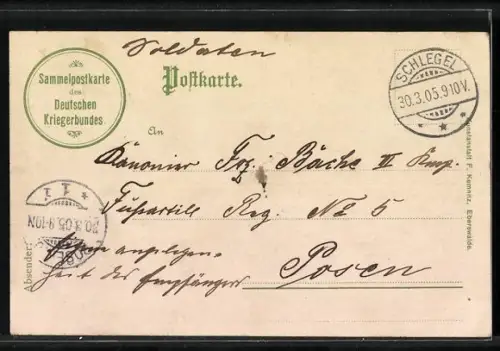 Soldaten
Sammelpostkarte
des
Deutschen
Kriegerbundes.
Postkarte.
SCHLEGEL
30.3.05.9-10V.
An
Kanonier Frz. Bäche II Komp.
Fußartill Reg. No 5
Posen
Eigene Angelegen-
heit des Empfängers
Absender:
30.3.05.9-10N
Kunstanstalt F. Kemnitz, Eberswalde.